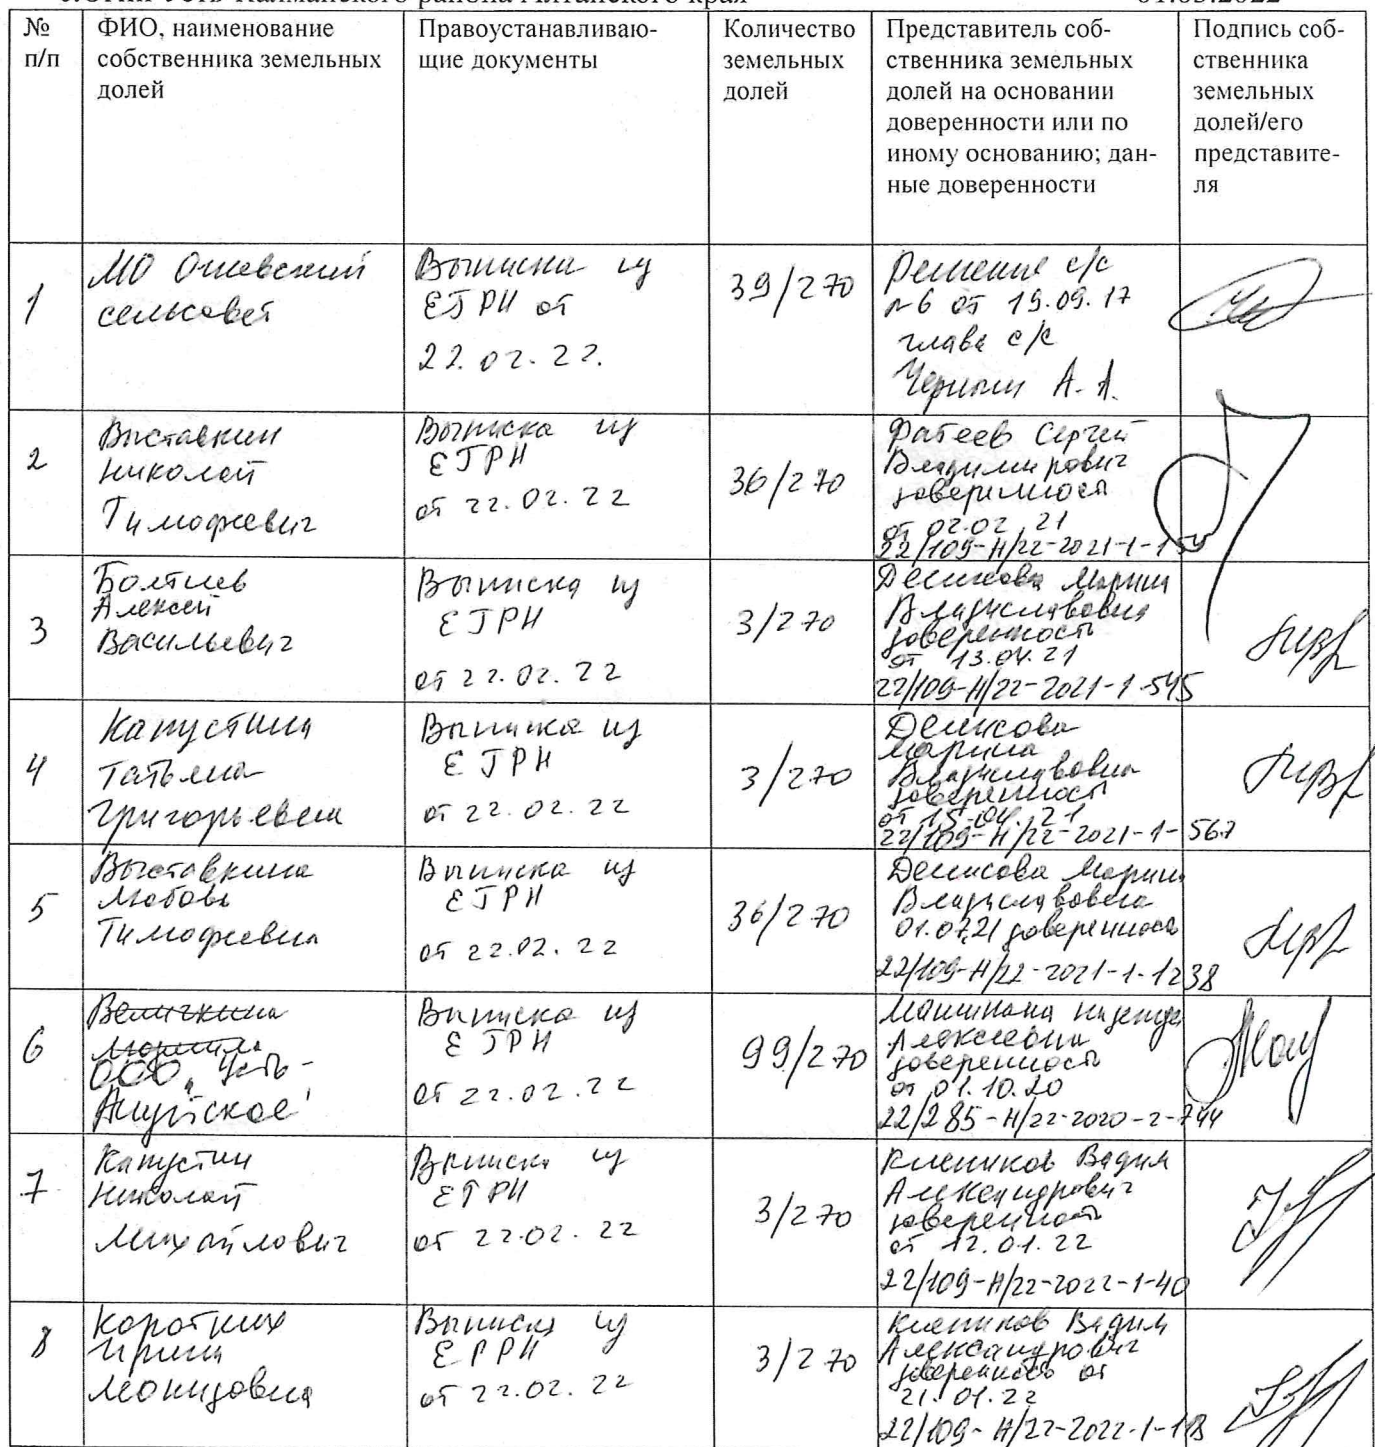 Усть-Калманского района Алтайского края
№ п/п
ФИО, наименование
собственника земельных
долей
Правоустанавливаю-
щие документы
Количество
земельных
долей
Представитель соб-
ственника земельных
долей на основании
доверенности или по
иному основанию; дан-
ные доверенности
Подпись соб-
ственника
земельных
долей/его
представите-
ля
1
МО Огневский
сельсовет
Выписки из
ЕГРН от
22.02.22.
39/270
Решение с/с
№6 от 19.09.17
глава с/с
А.А.
2
Выставкин
Николай
Тимофеевич
Выписка из
ЕГРН
от 22.02.22
36/270
Фатеев Сергей
Владимирович
доверенность
от 02.02.21
22/109-Н/22-2021-1-
3
Болтнев
Алексей
Васильевич
Выписка из
ЕГРН
от 22.02.22
3/270
Денисова Марина
Владиславовна
доверенность
от 13.04.21
22/109-Н/22-2021-1-545
4
Капустина
Татьяна
Григорьевна
Выписка из
ЕГРН
от 22.02.22
3/270
Денисова
Марина
Владиславовна
доверенность
от 15.04.21
22/109-Н/22-2021-1-567
5
Выставкина
Любовь
Тимофеевна
Выписка из
ЕГРН
от 22.02.22
36/270
Денисова Марина
Владиславовна
01.07.21 доверенность
22/109-Н/22-2021-1-1238
6
ООО "Усть-
Ануйское"
Выписка из
ЕГРН
от 22.02.22
99/270
Надежда
Алексеевна
доверенность
от 01.10.20
22/285-Н/22-2020-2-744
7
Капустин
Николай
Михайлович
Выписка из
ЕГРН
от 22.02.22
3/270
Клепиков Вадим
Александрович
доверенность
от 12.01.22
22/109-Н/22-2022-1-40
8
Коротких
Ирина
Леонидовна
Выписка из
ЕГРН
от 22.02.22
3/270
Клепиков Вадим
Александрович
доверенность от
21.01.22
22/109-Н/22-2022-1-118